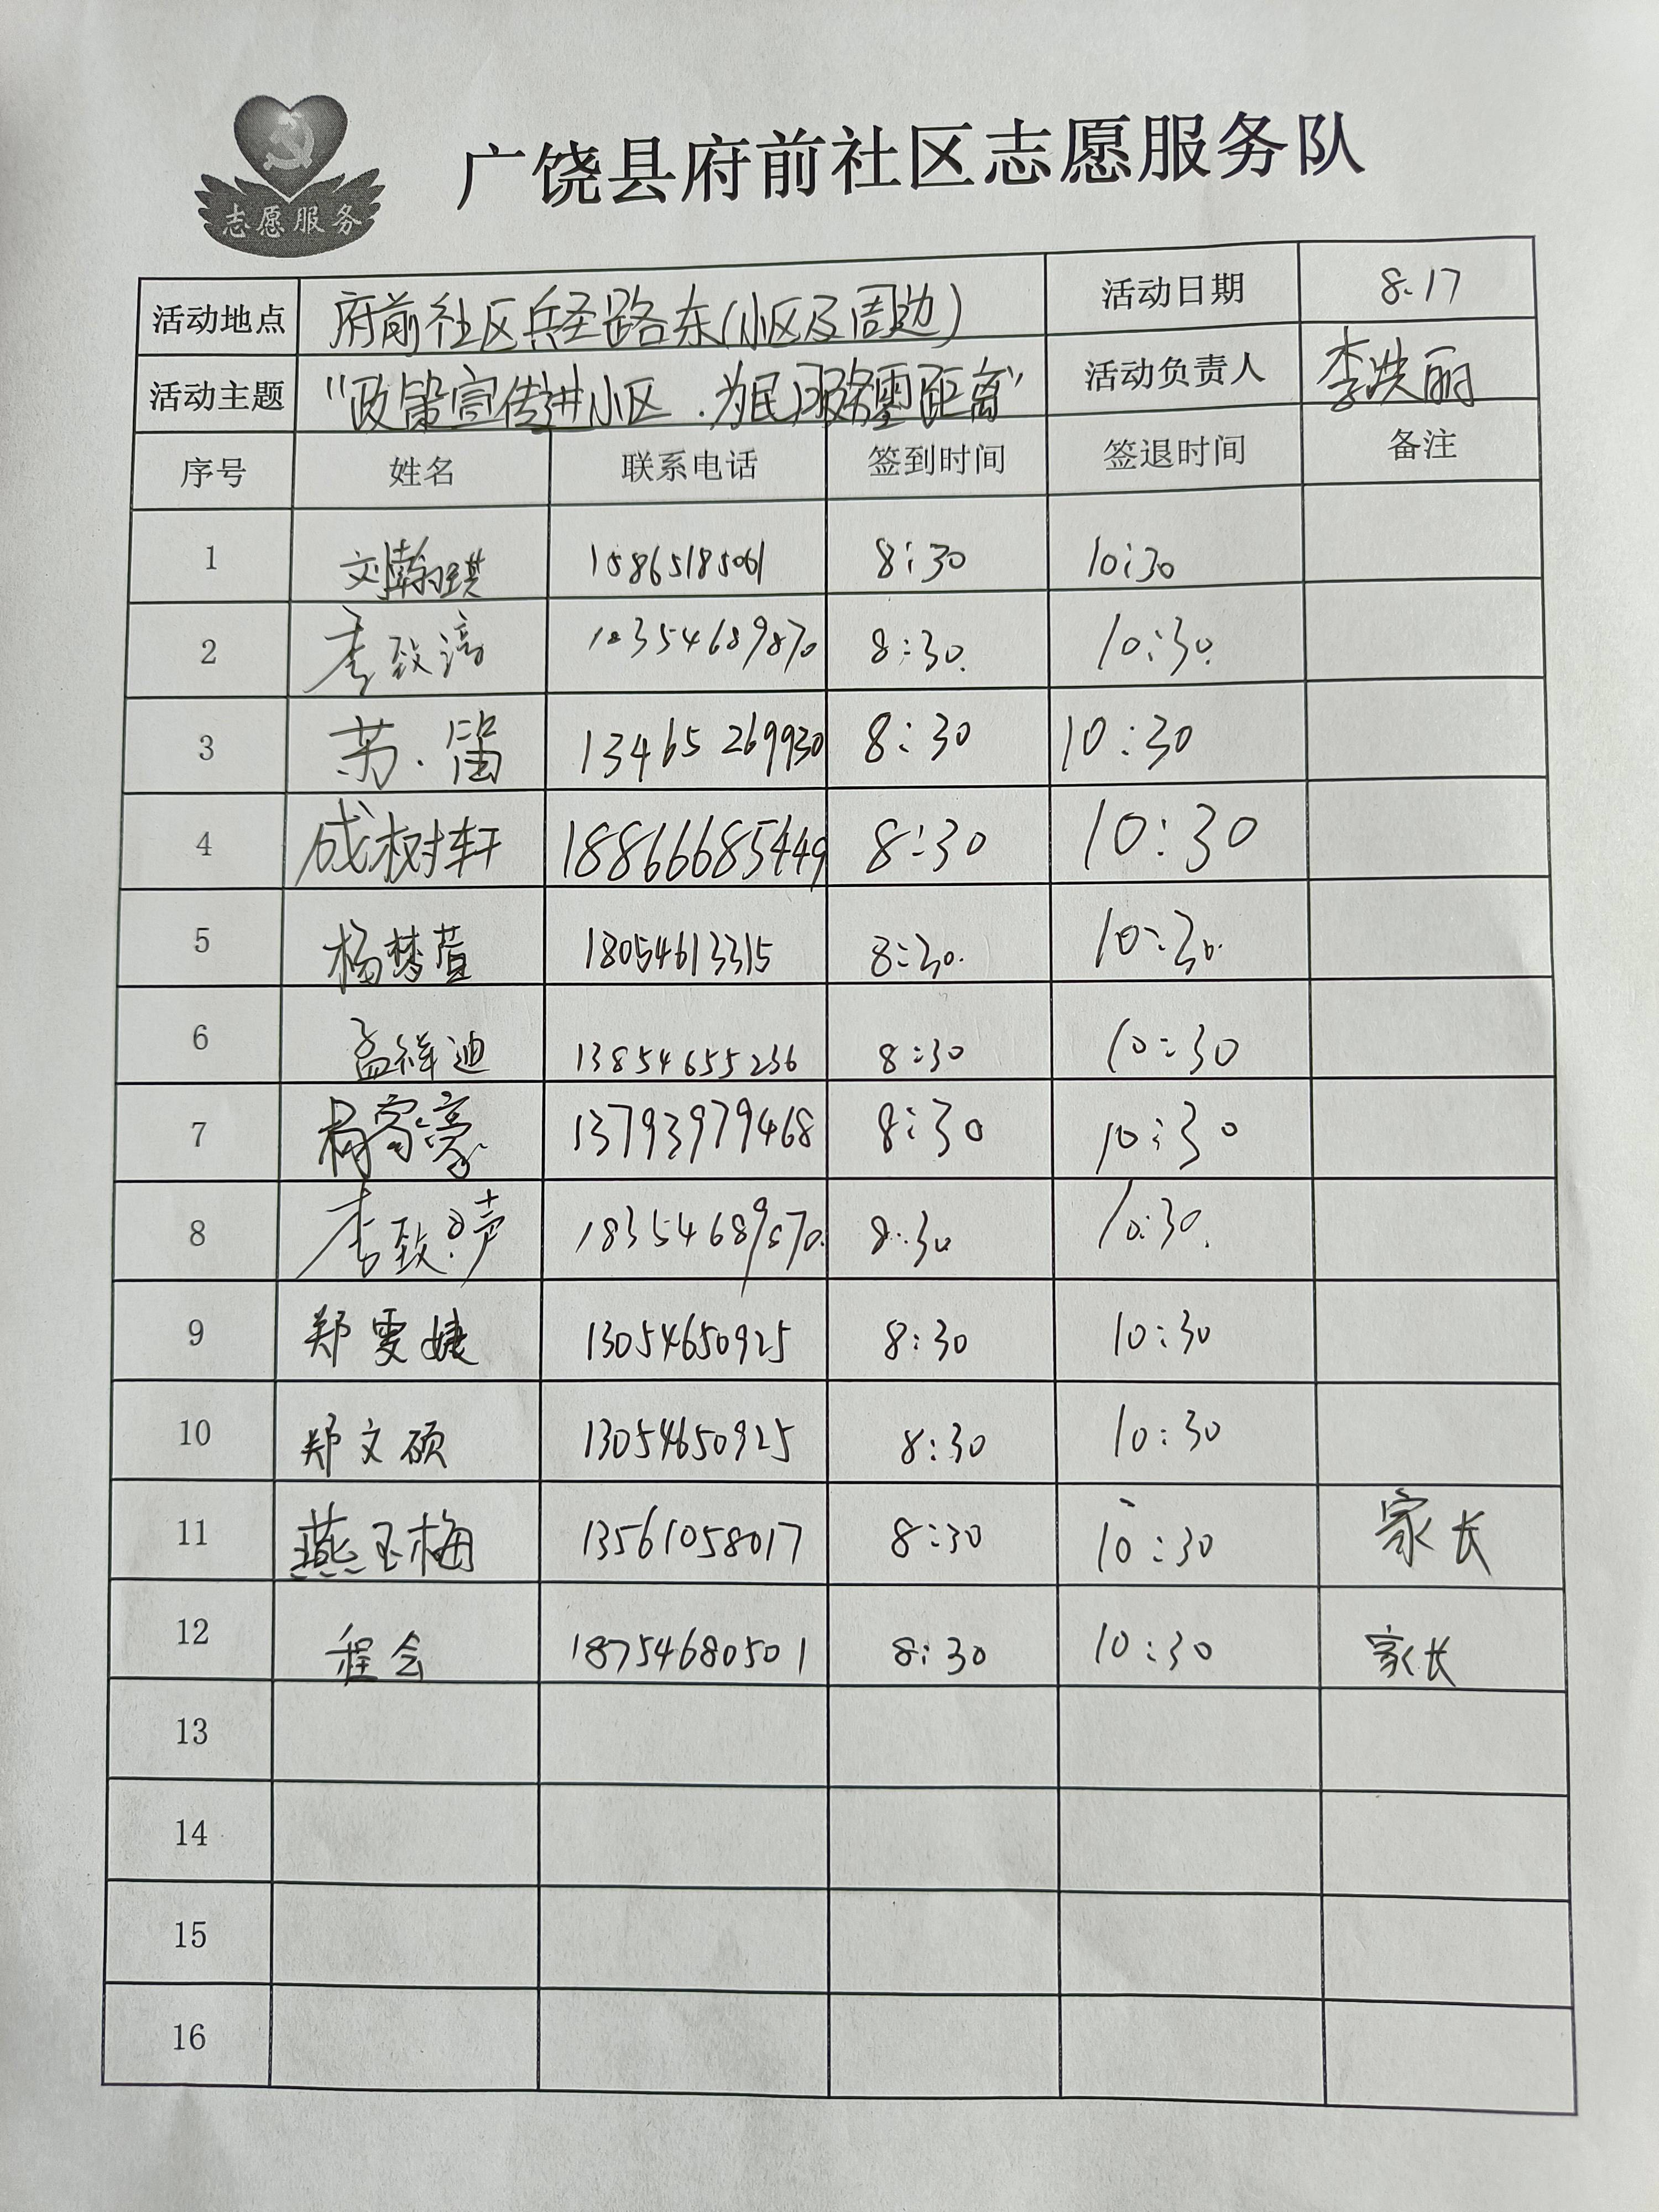 志愿服务
广饶县府前社区志愿服务队
活动地点 府前社区兵圣路东(小区及周边) 活动日期 8.17
活动主题 "政策宣传进小区.为民服务零距离" 活动负责人 李洪丽
序号 姓名 联系电话 签到时间 签退时间 备注
1 刘翰琪 15865185061 8:30 10:30
2 李致 18354689870 8:30. 10:30.
3 13465269930 8:30 10:30
4 成树轩 18866685449 8:30 10:30
5 杨梦萱 18054613315 8:30. 10:30.
6 孟祥迪 13854655236 8:30 10:30
7 杨家豪 13793979468 8:30 10:30
8 李致 18354689870. 8:30 10:30.
9 郑雯婕 13054650925 8:30 10:30
10 郑文硕 13054650925 8:30 10:30
11 燕玉梅 13561058017 8:30 10:30 家长
12 程会 18754680501 8:30 10:30 家长
13
14
15
16